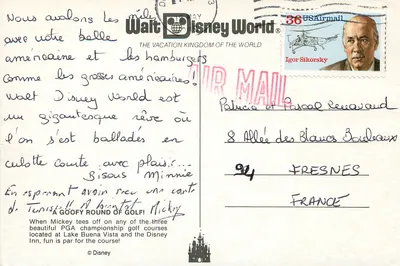 Nous avalons les miles
avec notre belle
américaine et les hamburgers
comme les grosses américaines.
Walt Disney World est
un gigantesque rêve où
l'on s'est balladés en
culotte courte avec plaisir...
Bisous Minnie
En espérant avoir reçu une carte
de Tunisie. A bientôt Mickey
Walt Disney World
THE VACATION KINGDOM OF THE WORLD
36 USAirmail
Igor Sikorsky
AIR MAIL
Patricia et Pascal
8 Allée des Blancs Bouleaux
94 FRESNES
FRANCE
A GOOFY ROUND OF GOLF!
When Mickey tees off on any of the three
beautiful PGA championship golf courses
located at Lake Buena Vista and the Disney
Inn, fun is par for the course!
© Disney